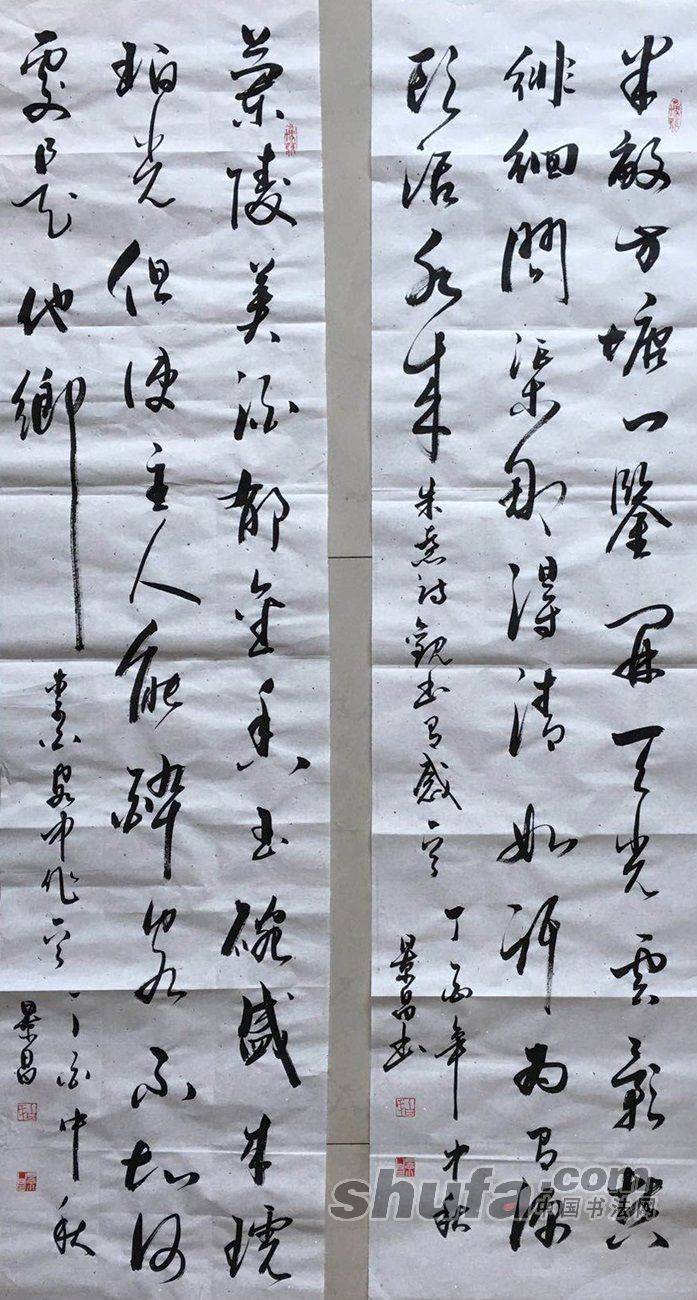 半敵方塘一鑒開天光雲影共
徘徊問渠那得清如許为有源
頭活水来
朱熹诗觀書有感一首
丁酉年中秋
景昌書
蘭陵美酒郁金香玉碗盛来琥
珀光但使主人能醉客不知何
處是他鄉
李白客中作一首丁酉中秋
景昌
shufa.com
中国书法网